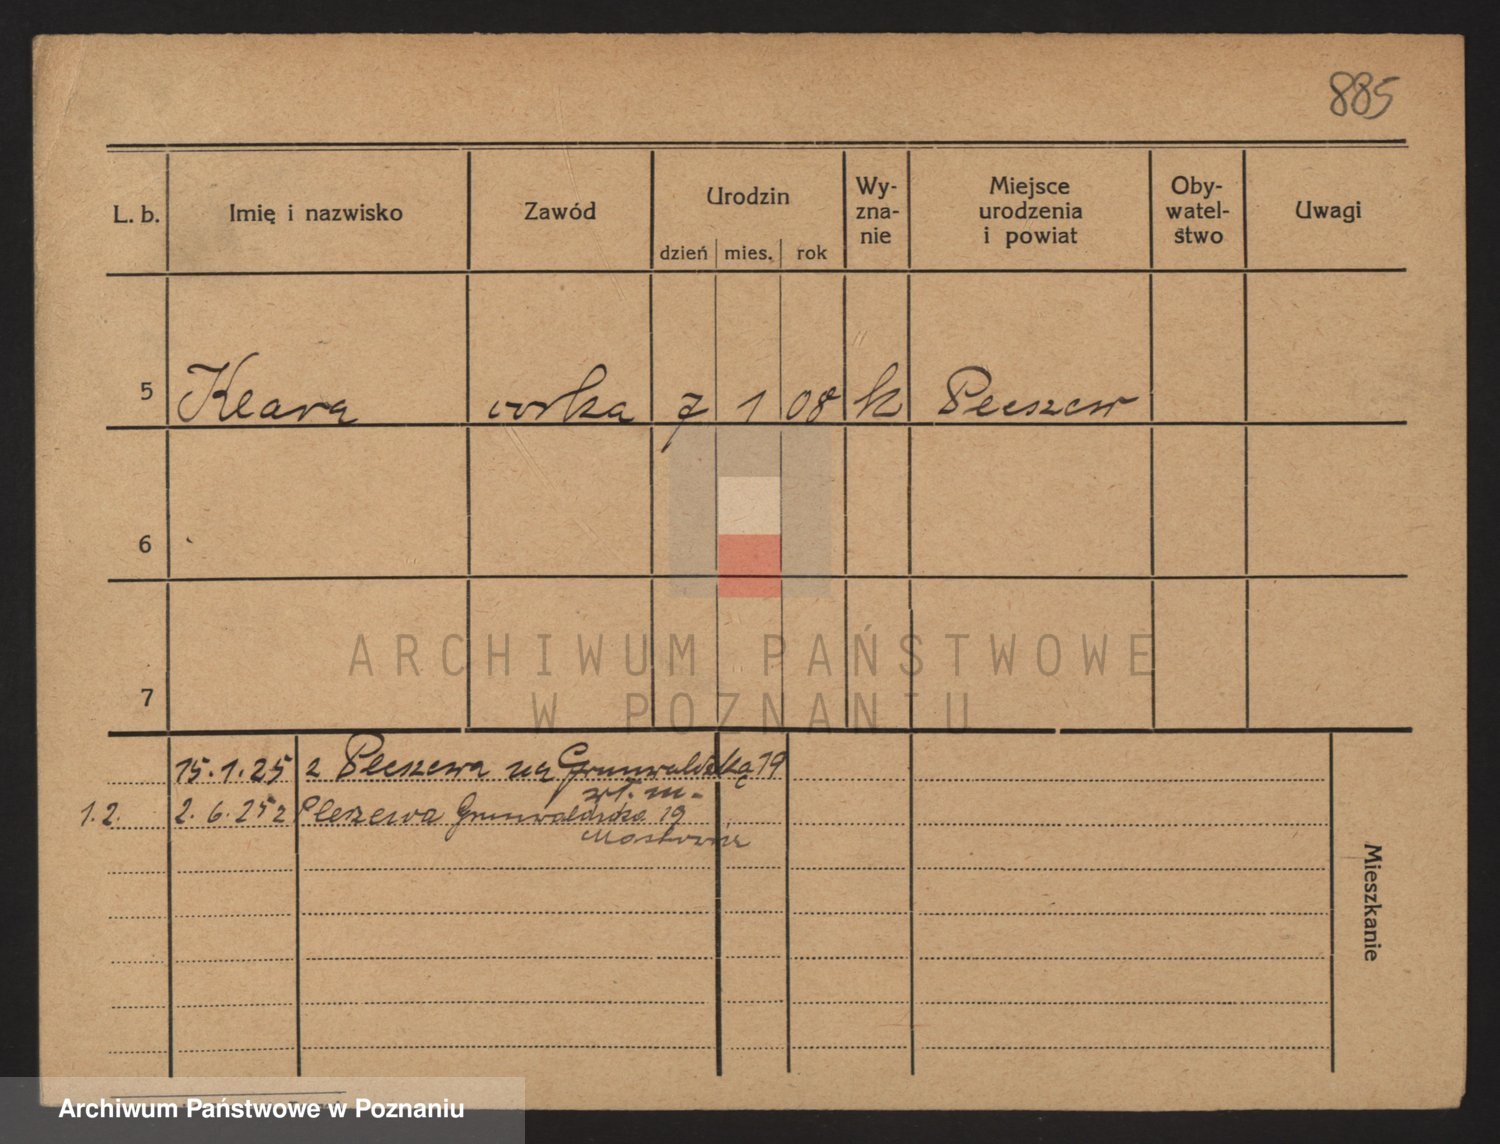 885
L. b. Imię i nazwisko Zawód Urodzin dzień mies. rok Wy- zna- nie Miejsce urodzenia i powiat Oby- watel- stwo Uwagi
5 Klara córka 7 1 08 k Pleszew
6
7
ARCHIWUM PAŃSTWOWE
W POZNANIU
15.1.25 z Pleszewa na Grunwaldzką 19
1.2. 2.6.25 z Pleszewa Grunwaldzka 19
Mieszkanie
Archiwum Państwowe w Poznaniu